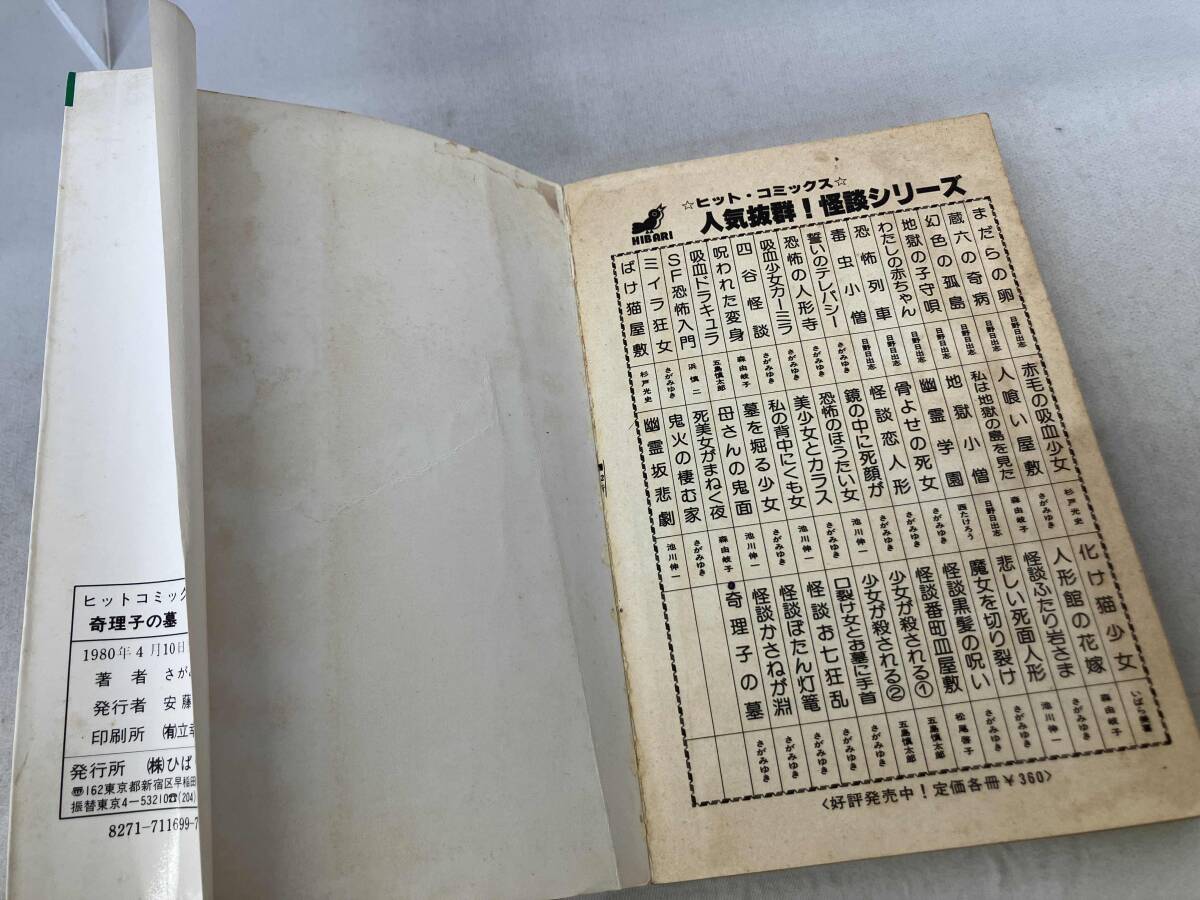 ☆ヒット・コミックス☆
人気抜群！怪談シリーズ
HIBARI
まだらの卵 日野日出志
蔵六の奇病 日野日出志
幻色の孤島 日野日出志
地獄の子守唄 日野日出志
わたしの赤ちゃん 日野日出志
恐怖列車 日野日出志
毒虫小僧 日野日出志
誓いのテレパシー さがみゆき
恐怖の人形寺 さがみゆき
吸血少女カーミラ さがみゆき
四谷怪談 さがみゆき
呪われた変身 森由岐子
吸血ドラキュラ 五島慎太郎
SF恐怖入門 浜慎二
ミイラ狂女 さがみゆき
ばけ猫屋敷 杉戸光史
赤毛の吸血少女 杉戸光史
人喰い屋敷 さがみゆき
私は地獄の島を見た 森由岐子
地獄小僧 日野日出志
幽霊学園 西たけろう
骨よせの死女 さがみゆき
怪談恋人形 さがみゆき
鏡の中に死顔が さがみゆき
恐怖のほうたい女 池川伸一
美少女とカラス さがみゆき
私の背中にくも女 池川伸一
墓を堀る少女 池川伸一
母さんの鬼面 森由岐子
死美女がまねく夜 さがみゆき
鬼火の棲む家
幽霊坂悲劇 池川伸一
化け猫少女 いばら美喜
人形館の花嫁 森由岐子
怪談ふたり岩さま さがみゆき
悲しい死面人形 池川伸一
魔女を切り裂け さがみゆき
怪談黒髪の呪い 松尾啓子
怪談番町皿屋敷 五島慎太郎
少女が殺される① 五島慎太郎
少女が殺される② さがみゆき
口裂け女とお墓に手首 さがみゆき
怪談お七狂乱 さがみゆき
怪談ぼたん灯篭 さがみゆき
怪談かさねが淵 さがみゆき
奇理子の墓
<好評発売中！定価各冊￥360>
ヒットコミック
奇理子の墓
1980年4月10日
著者 さが
発行者 安藤
印刷所 ㈲立幸
発行所 ㈱ひば
〠162東京都新宿区早稲田
振替東京4-53210☎(204)
8271-711699-7